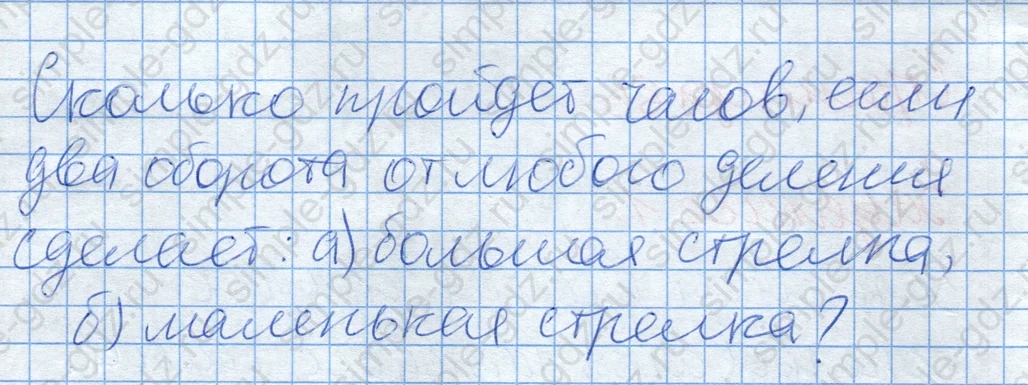 Сколько пройдет часов, если
два оборота от любого деления
сделает: а) большая стрелка,
б) маленькая стрелка?